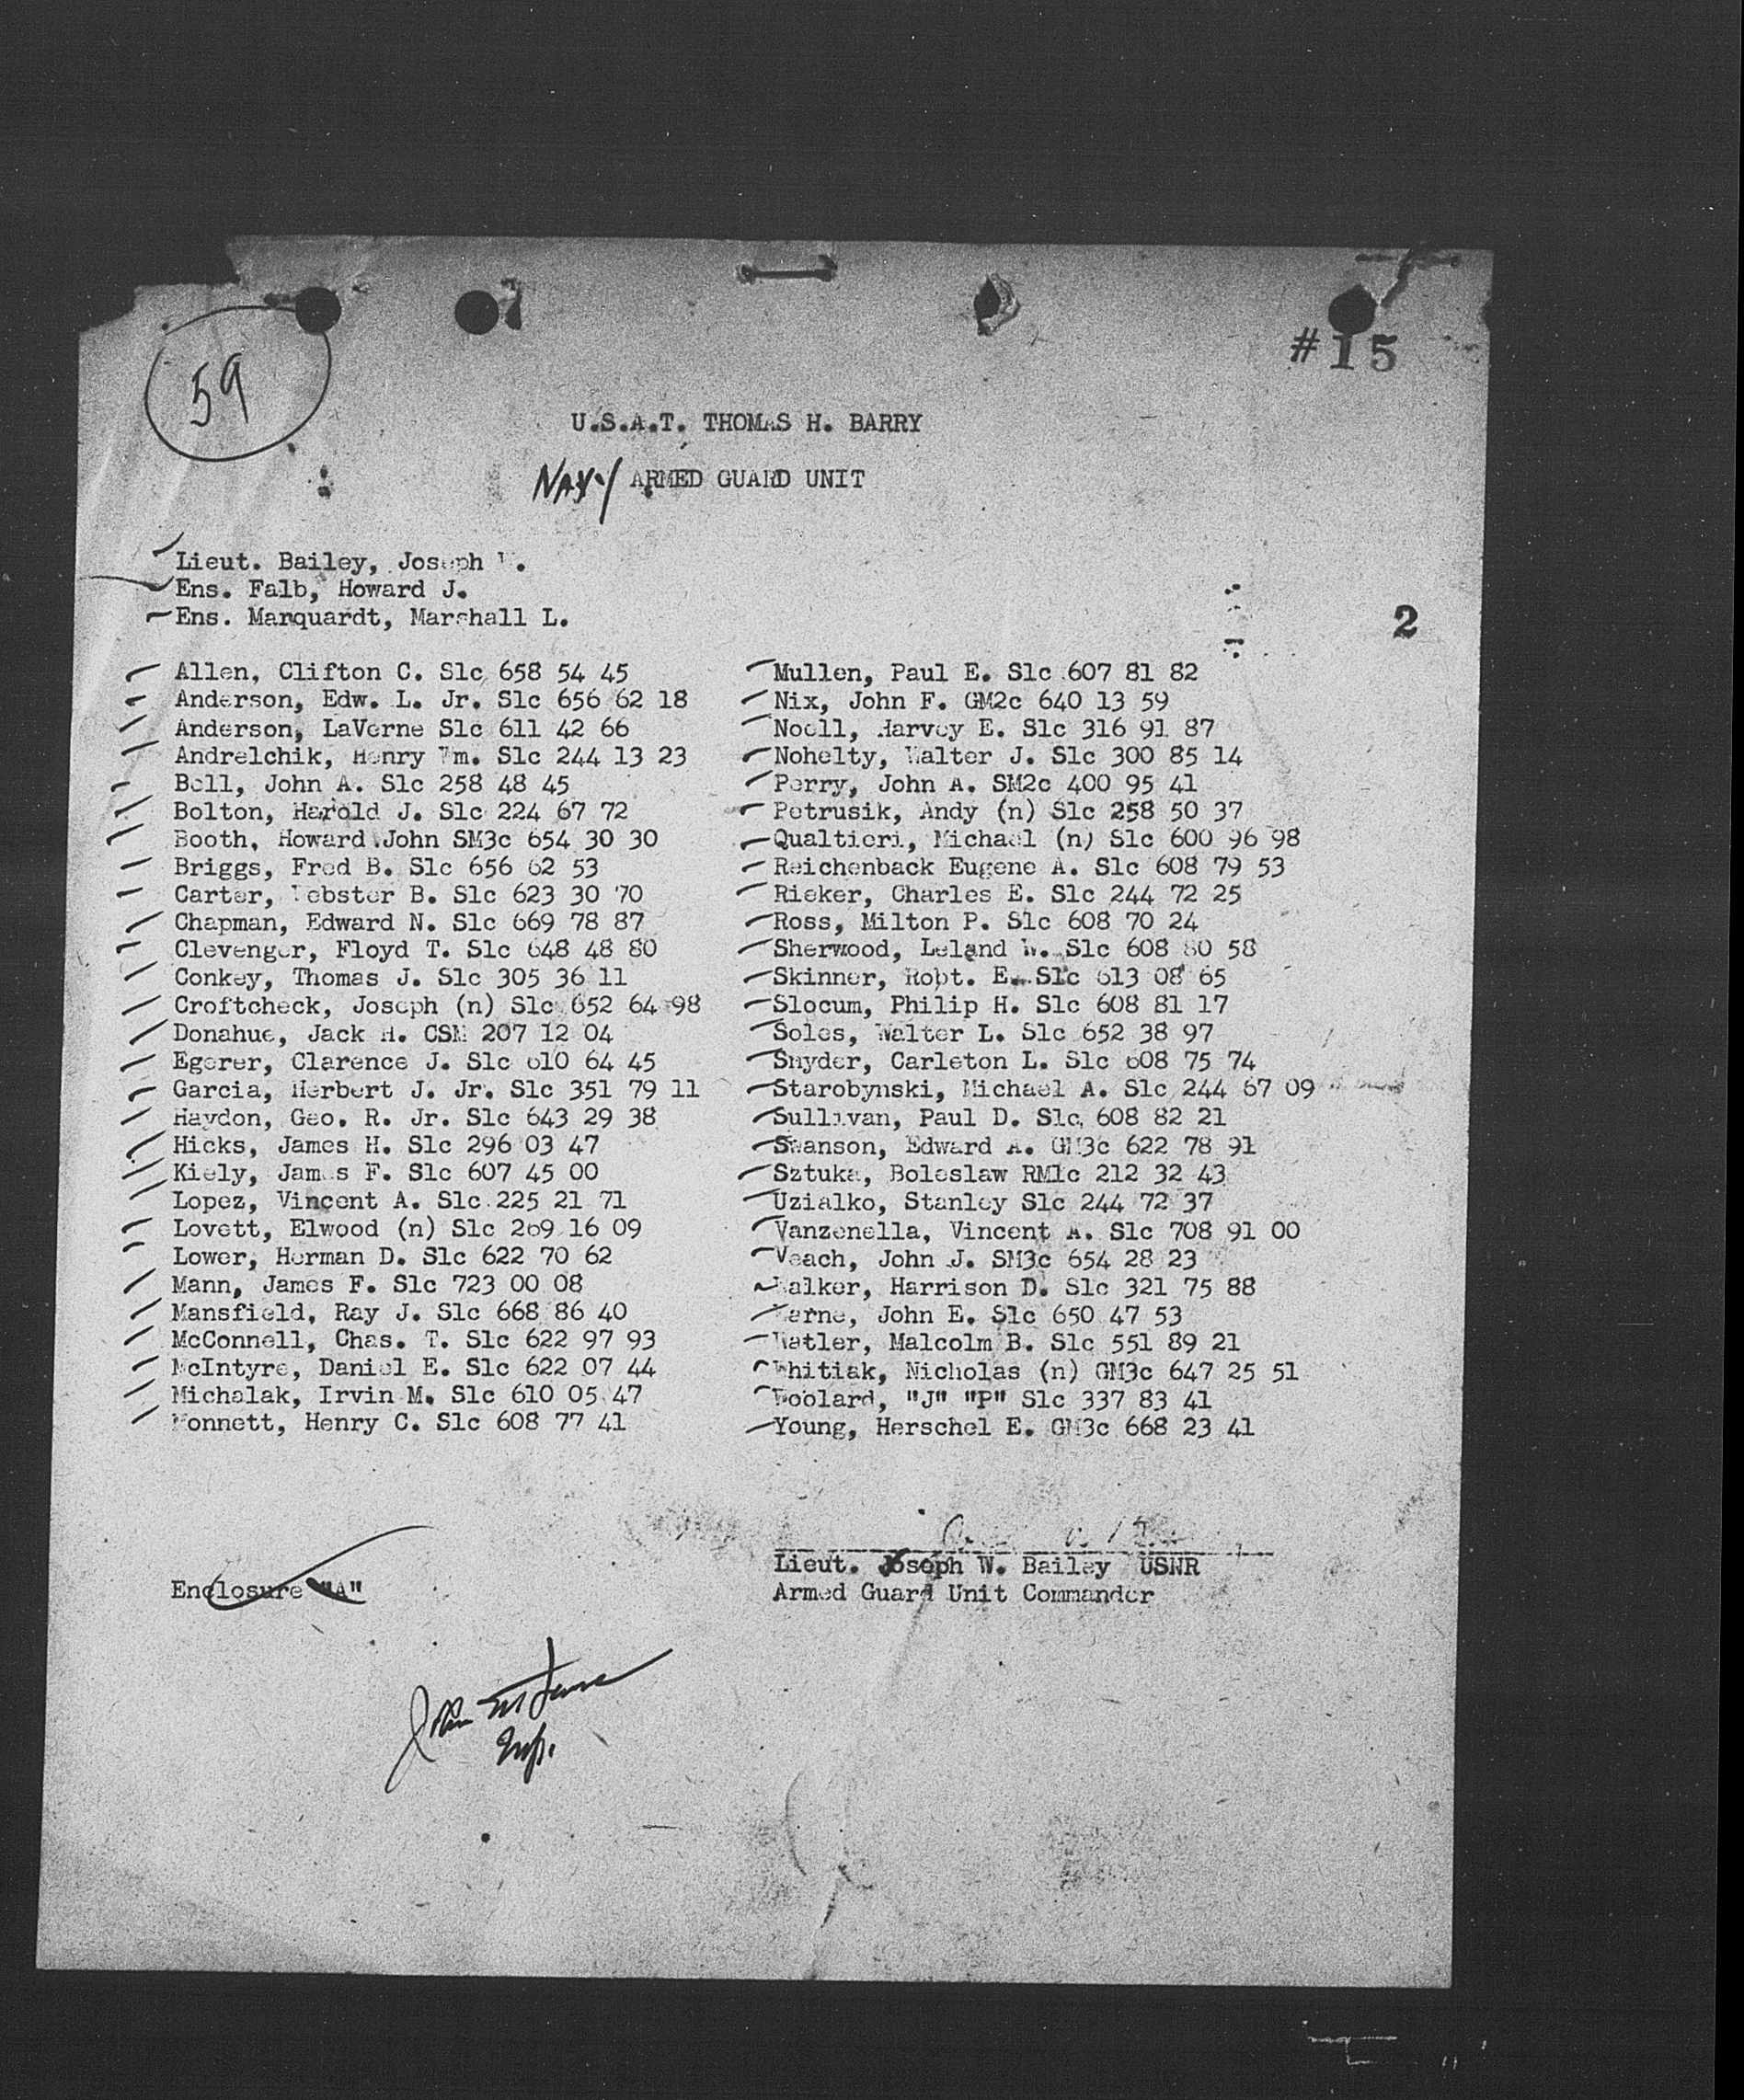 59
#15
U.S.A.T. THOMAS H. BARRY
NAVY ARMED GUARD UNIT
Lieut. Bailey, Joseph W.
Ens. Falb, Howard J.
Ens. Marquardt, Marshall L.
2
Allen, Clifton C. S1c 658 54 45
Anderson, Edw. L. Jr. S1c 656 62 18
Anderson, LaVerne S1c 611 42 66
Andrelchik, Henry Wm. S1c 244 13 23
Bell, John A. S1c 258 48 45
Bolton, Harold J. S1c 224 67 72
Booth, Howard John SM3c 654 30 30
Briggs, Fred B. S1c 656 62 53
Carter, Webster B. S1c 623 30 70
Chapman, Edward N. S1c 669 78 87
Clevenger, Floyd T. S1c 648 48 80
Conkey, Thomas J. S1c 305 36 11
Croftcheck, Joseph (n) S1c 652 64 98
Donahue, Jack H. CSM 207 12 04
Egerer, Clarence J. S1c 610 64 45
Garcia, Herbert J. Jr. S1c 351 79 11
Haydon, Geo. R. Jr. S1c 643 29 38
Hicks, James H. S1c 296 03 47
Kiely, James F. S1c 607 45 00
Lopez, Vincent A. S1c 225 21 71
Lovett, Elwood (n) S1c 269 16 09
Lower, Herman D. S1c 622 70 62
Mann, James F. S1c 723 00 08
Mansfield, Ray J. S1c 668 86 40
McConnell, Chas. T. S1c 622 97 93
McIntyre, Daniel E. S1c 622 07 44
Michalak, Irvin M. S1c 610 05 47
Monnett, Henry C. S1c 608 77 41
Mullen, Paul E. S1c 607 81 82
Nix, John F. GM2c 640 13 59
Noell, Harvey E. S1c 316 91 87
Nohelty, Walter J. S1c 300 85 14
Perry, John A. SM2c 400 95 41
Petrusik, Andy (n) S1c 258 50 37
Qualtieri, Michael (n) S1c 600 96 98
Reichenback Eugene A. S1c 608 79 53
Rieker, Charles E. S1c 244 72 25
Ross, Milton P. S1c 608 70 24
Sherwood, Leland W. S1c 608 80 58
Skinner, Robt. E. S1c 613 08 65
Slocum, Philip H. S1c 608 81 17
Soles, Walter L. S1c 652 38 97
Snyder, Carleton L. S1c 608 75 74
Starobynski, Michael A. S1c 244 67 09
Sullivan, Paul D. S1c 608 82 21
Swanson, Edward A. GM3c 622 78 91
Sztuka, Boleslaw RM1c 212 32 43
Uzialko, Stanley S1c 244 72 37
Vanzenella, Vincent A. S1c 708 91 00
Veach, John J. SM3c 654 28 23
Walker, Harrison D. S1c 321 75 88
Warne, John E. S1c 650 47 53
Watler, Malcolm B. S1c 551 89 21
Whitiak, Nicholas (n) GM3c 647 25 51
Woolard, "J" "P" S1c 337 83 41
Young, Herschel E. GM3c 668 23 41
Lieut. Joseph W. Bailey USNR
Armed Guard Unit Commander
Enclosure "A"
John
Insp.